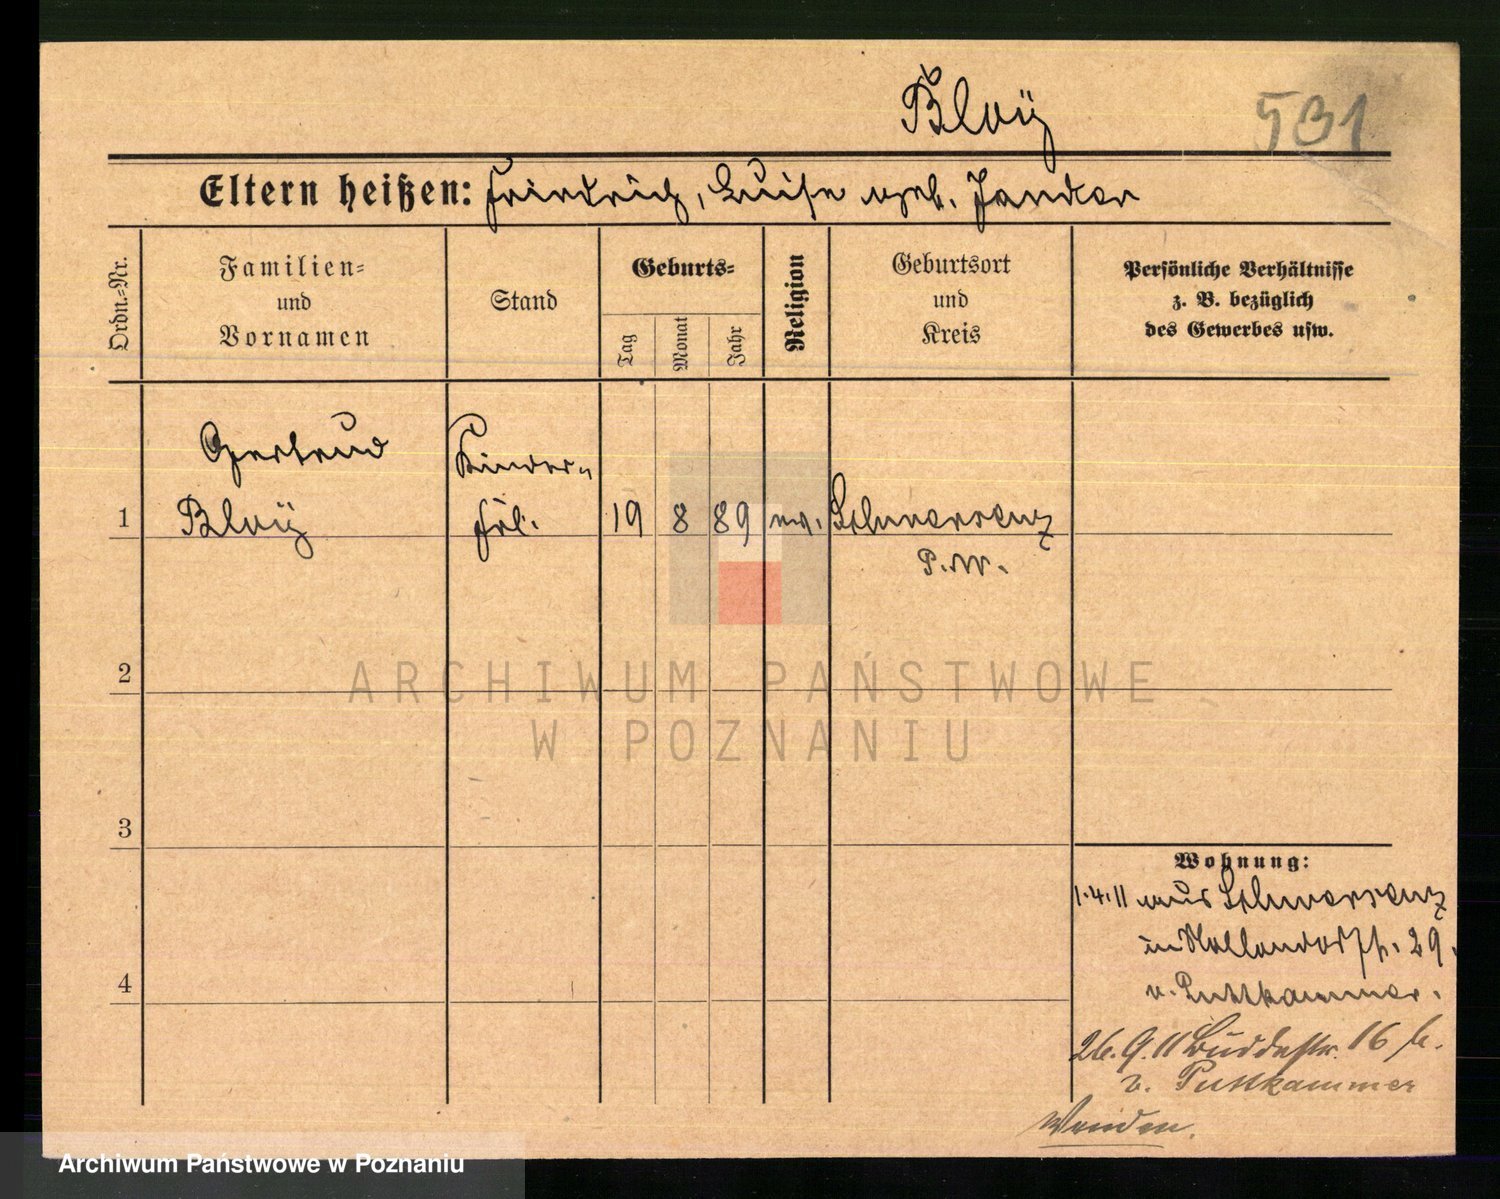 Bloÿ
531
Eltern heißen: Friedrich, Luise geb. Jander
Ordn.-Nr.
Familien-
und
Vornamen
Stand
Geburts-
Tag
Monat
Jahr
Religion
Geburtsort
und
Kreis
Persönliche Verhältnisse
z. B. bezüglich
des Gewerbes usw.
Gertrud
Bloÿ
Kinder-
frl.
1
19 8 89 ev. Schwersenz
P.W.
2
ARCHIWUM PAŃSTWOWE
W POZNANIU
3
Wohnung:
1.4.11 aus Schwersenz
in 29.
v. Puttkammer.
4
26.9.11 Buddestr. 16 b.
v. Puttkammer
Wenden.
Archiwum Państwowe w Poznaniu